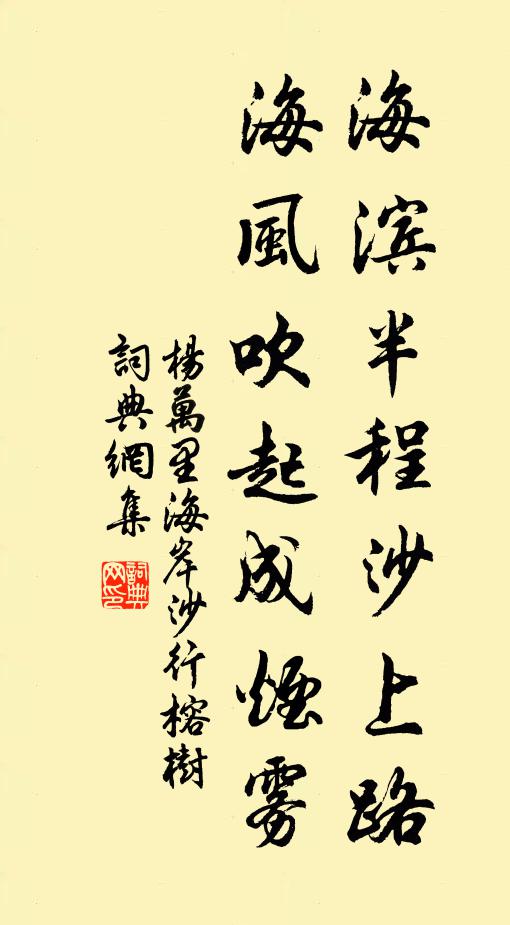 海滨半程沙上路
海風吹起成煙霧
楊萬里海岸沙行榕樹
詞典網集
詞典
网印